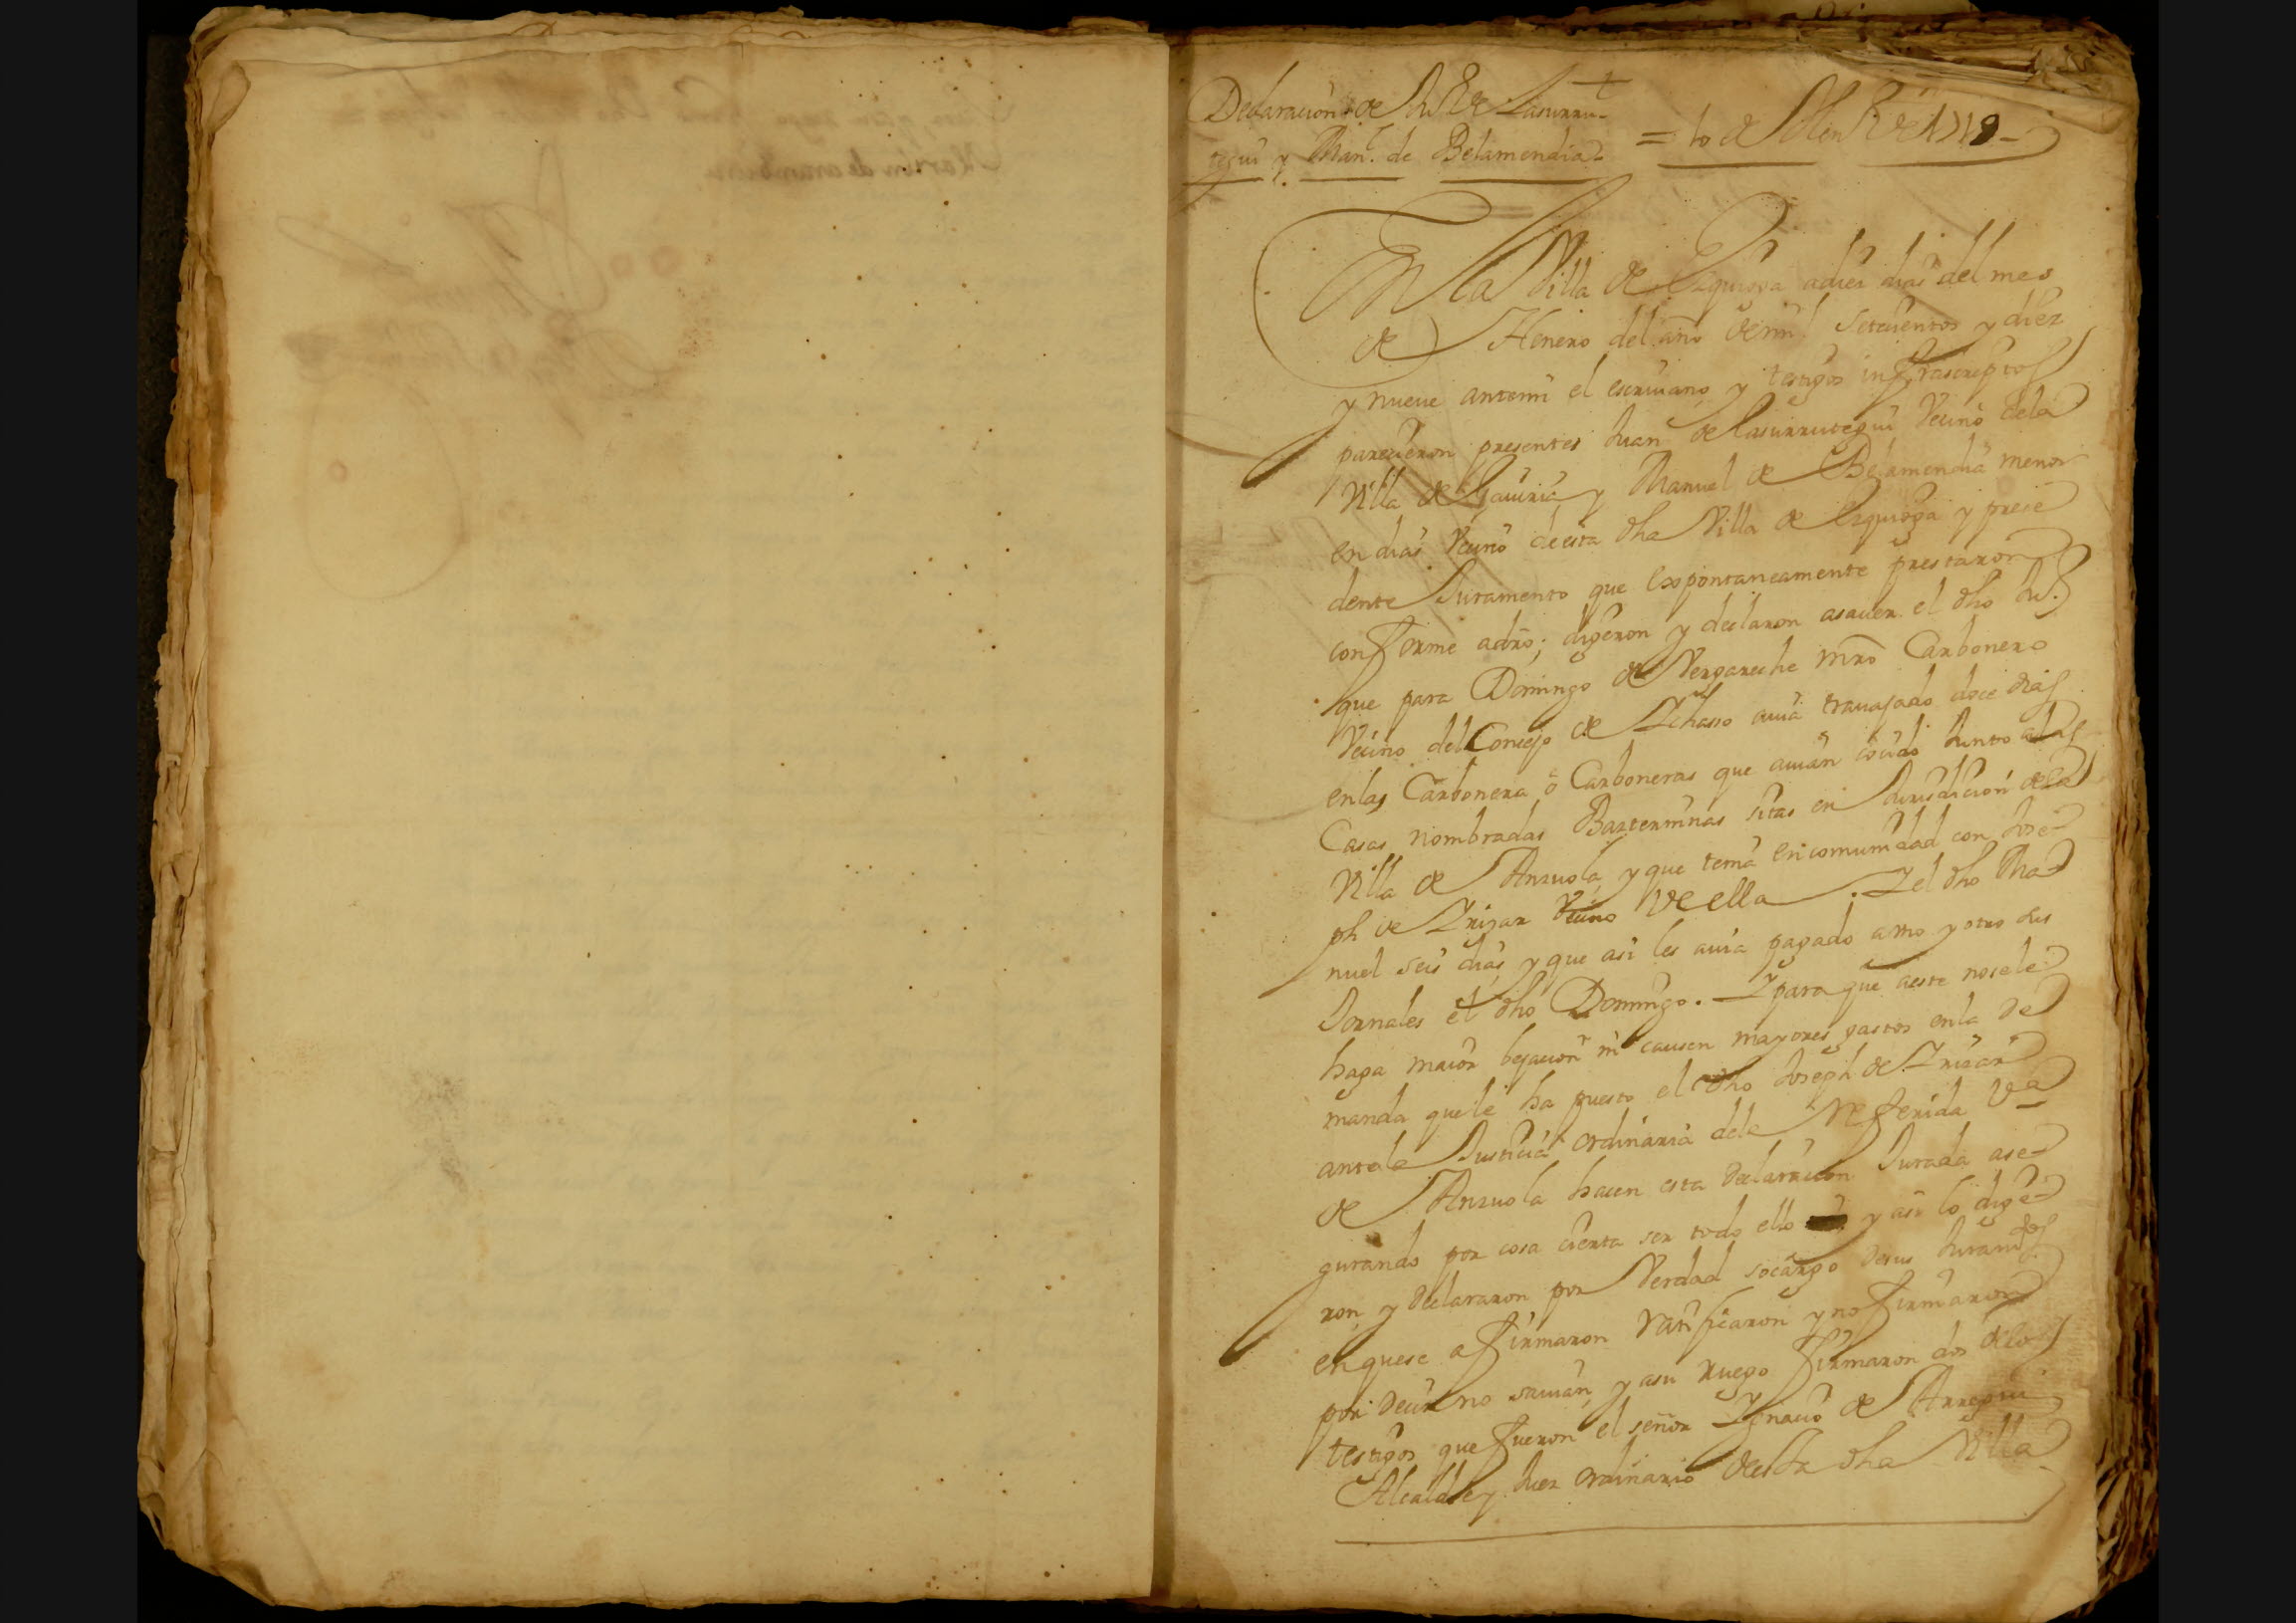 Declaracion de Ju.º de Lasurru-
tegui y Man.l de Belamendia =
= 10 de Hen.º de 1719 -
En la Villa de Ezquioga a diez dias del mes
de Henero del año de mil Setecientos y diez
y nueve antemi el escriuano y testigos infrascriptos
parecieron presentes Juan de Lasurrutegui Vecino dela
Villa de Gauiria, y Manuel de Belamendia menor
en dias Vecino de esta dha Villa de Ezquioga y prece
dente Juramento que Expontaneamente prestaron
conforme adrō; digeron y declaron asauer el dho Ju.º
que para Domingo de Vergareche mrō Carbonero
Vecino del Concejo de Ichasso auia trauajado doce dias
enlas Carbonera ó Carboneras que auian cocido Junto alas
Casas nombradas Barterminas sitas en Jurisdicion dela
Villa de Anzuola, y que tenia en comunidad con Jose-
ph de Irizar Vecino de ella. Y el dho Ma-
nuel seis dias, y que asi les auia pagado a vno y otro sus
Jornales el dho Domingo. Y para que aeste nosele
haga maior bejacion ni causen mayores gastos enla de
manda quele ha puesto el dho Joseph de Irizar
ante la Justicia ordinaria dela Referida Va
de Anzuola hacen esta Declaracion Jurada ase-
gurando por cosa cierta ser todo ello y asi lo dige-
ron y declararon por Verdad socargo desus Juramtos
enquese afirmaron Ratificaron y no firmaron
por decir no sauian, y asu ruego firmaron dos delos
testigos que fueron el señor Ygnacio de Arregui
Alcalde y Juez ordinario desta dha Villa